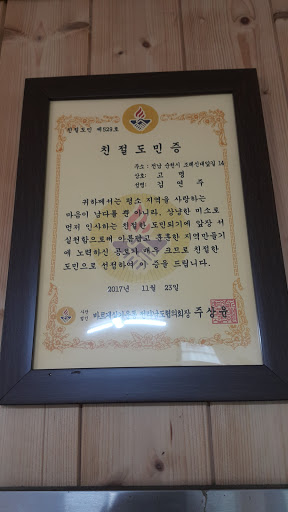 친절도민 제529호
친절도민증
주소 : 전남 순천시 조례신대말길 14
상호 : 고명
성명 : 김연주
귀하께서는 평소 지역을 사랑하는
마음이 남다를 뿐 아니라, 상냥한 미소로
먼저 인사하는 친절한 도민되기에 앞장 서
실천함으로써 아름답고 훈훈한 지역만들기
에 노력하신 공로가 매우 크므로 친절한
도민으로 선정하여 이 증을 드립니다.
2017년 11월 23일
사단
법인
바르게살기운동 전라남도협의회장 주상윤